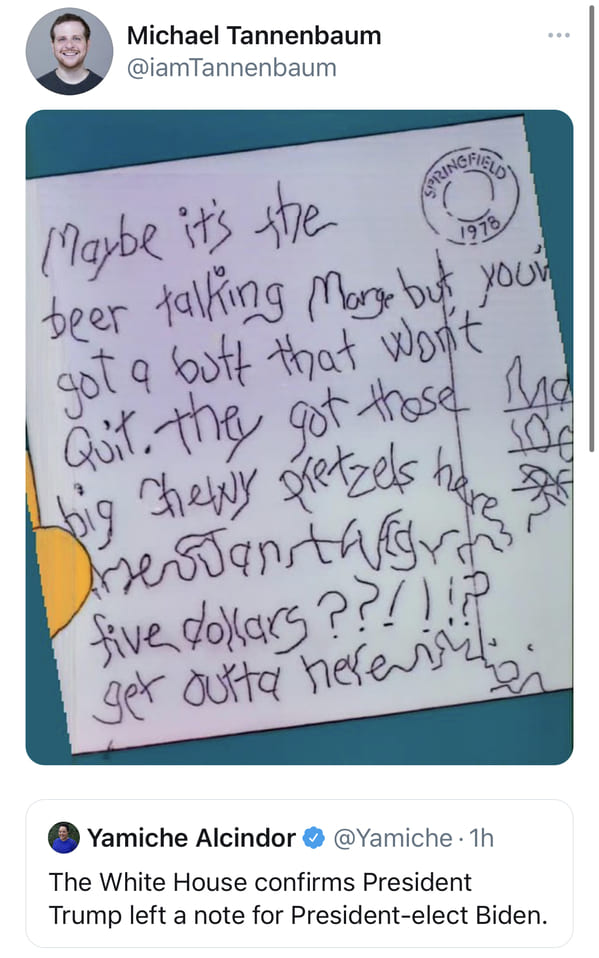 Michael Tannenbaum
@iamTannenbaum
SPRINGFIELD
1978
Maybe it's the
beer talking Marge but you'v
got a butt that won't
Quit. they got those
big chewy pretzels here
five dollars??!!!?
get outta here
Yamiche Alcindor @Yamiche · 1h
The White House confirms President
Trump left a note for President-elect Biden.